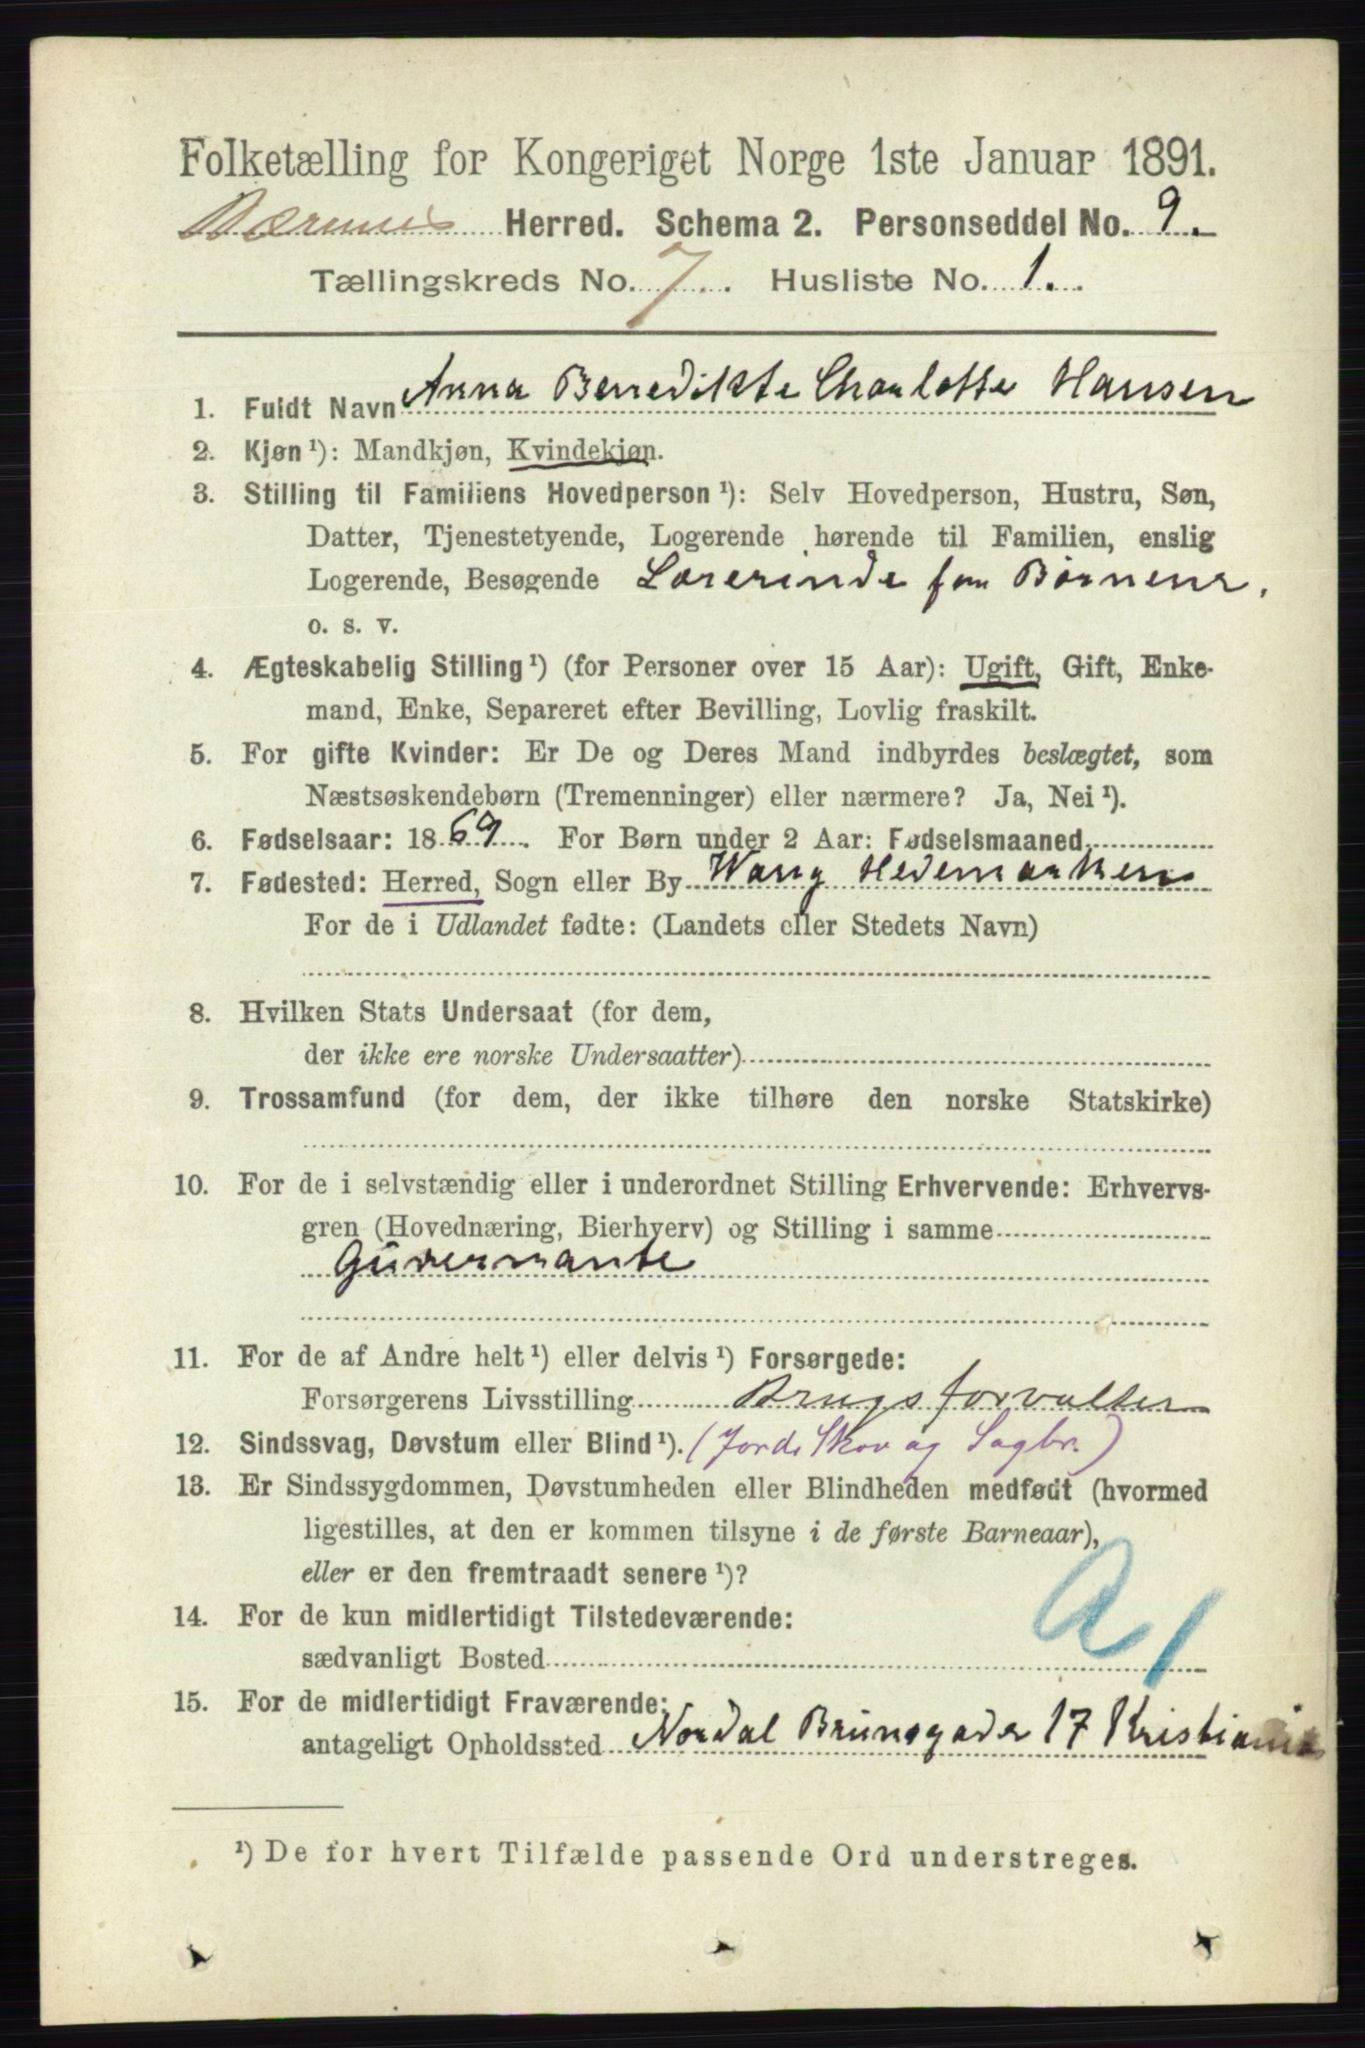 Folketælling for Kongeriget Norge 1ste Januar 1891.
Bærums Herred. Schema 2. Personseddel No. 9.
Tællingskreds No. 7. Husliste No. 1.
1. Fuldt Navn Anna Benedikte Charlotte Hansen
2. Kjøn ¹): Mandkjøn, Kvindekjøn.
3. Stilling til Familiens Hovedperson ¹): Selv Hovedperson, Hustru, Søn,
Datter, Tjenestetyende, Logerende hørende til Familien, enslig
Logerende, Besøgende Lærerinde for Børnene.
o. s. v.
4. Ægteskabelig Stilling ¹) (for Personer over 15 Aar): Ugift, Gift, Enke-
mand, Enke, Separeret efter Bevilling, Lovlig fraskilt.
5. For gifte Kvinder: Er De og Deres Mand indbyrdes beslægtet, som
Næstsøskendebørn (Tremenninger) eller nærmere? Ja, Nei ¹).
6. Fødselsaar: 1869. For Børn under 2 Aar: Fødselsmaaned
7. Fødested: Herred, Sogn eller By Wang Hedemarken
For de i Udlandet fødte: (Landets eller Stedets Navn)
8. Hvilken Stats Undersaat (for dem,
der ikke ere norske Undersaatter)
9. Trossamfund (for dem, der ikke tilhøre den norske Statskirke)
10. For de i selvstændig eller i underordnet Stilling Erhvervende: Erhvervs-
gren (Hovednæring, Bierhverv) og Stilling i samme
Guvernante
11. For de af Andre helt ¹) eller delvis ¹) Forsørgede:
Forsørgerens Livsstilling Brugsforvalter
12. Sindssvag, Døvstum eller Blind ¹). (Jord. Skov og Sagbr.)
13. Er Sindssygdommen, Døvstumheden eller Blindheden medfødt (hvormed
ligestilles, at den er kommen tilsyne i de første Barneaar),
eller er den fremtraadt senere ¹)?
14. For de kun midlertidigt Tilstedeværende:
sædvanligt Bosted
A1
15. For de midlertidigt Fraværende:
antageligt Opholdssted Nordal Brunsgade 17 Kristiania
¹) De for hvert Tilfælde passende Ord understreges.